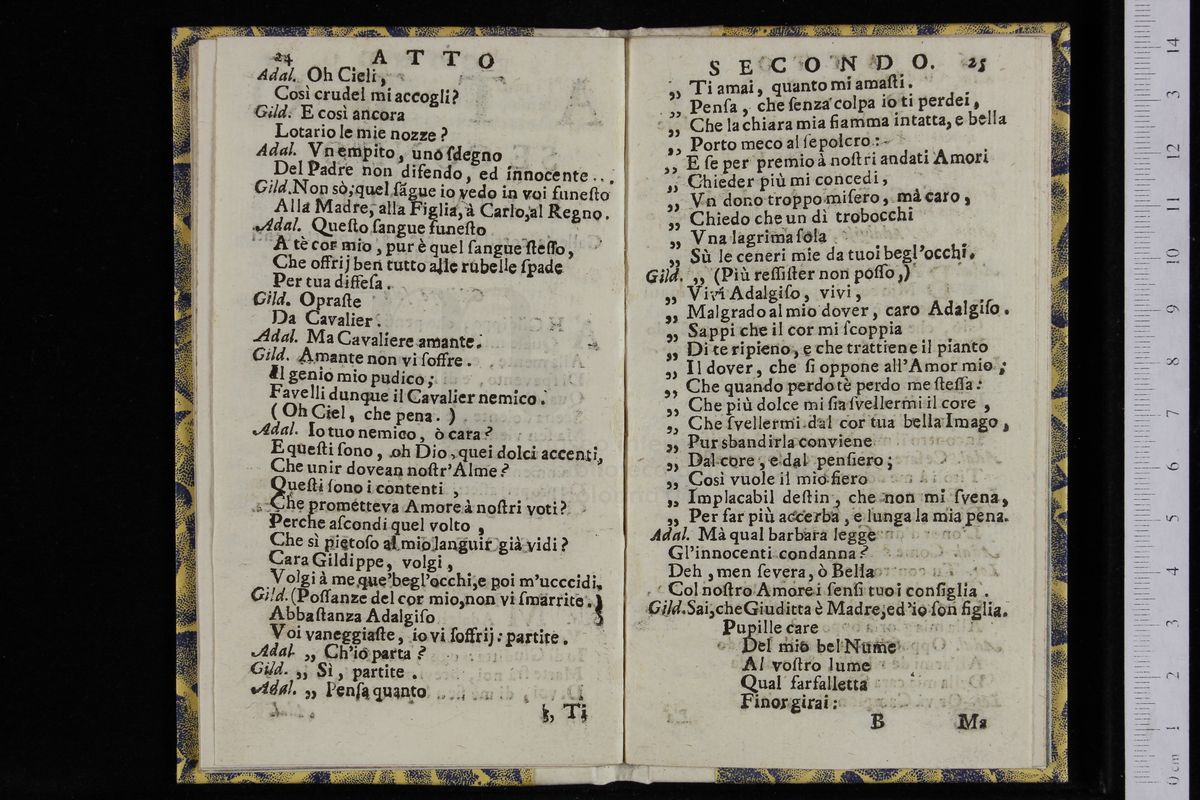 24 ATTO
Adal. Oh Cieli,
Così crudel mi accogli?
Gild. E così ancora
Lotario le mie nozze?
Adal. Vn empito, uno sdegno
Del Padre non difendo, ed innocente...
Gild. Non sò; quel sãgue io vedo in voi funesto
Alla Madre, alla Figlia, à Carlo, al Regno.
Adal. Questo sangue funesto
A tè cor mio, pur è quel sangue stesso,
Che offrij ben tutto alle rubelle spade
Per tua diffesa.
Gild. Opraste
Da Cavalier.
Adal. Ma Cavaliere amante.
Gild. Amante non vi soffre.
Il genio mio pudico;
Favelli dunque il Cavalier nemico.
(Oh Ciel, che pena.)
Adal. Io tuo nemico, ò cara?
E questi sono, oh Dio, quei dolci accenti,
Che unir dovean nostr'Alme?
Questi sono i contenti,
Che prometteva Amore à nostri voti?
Perche ascondi quel volto,
Che sì pietoso al mio languir già vidi?
Cara Gildippe, volgi,
Volgi à me que' begl'occhi, e poi m'ucccidi.
Gild. (Possanze del cor mio, non vi smarrite.)
Abbastanza Adalgiso
Voi vaneggiaste, io vi soffrij: partite.
Adal. „ Ch'io parta?
Gild. „ Sì, partite.
Adal. „ Pensa quanto
„ Ti
SECONDO. 25
„ Ti amai, quanto mi amasti.
„ Pensa, che senza colpa io ti perdei,
„ Che la chiara mia fiamma intatta, e bella
„ Porto meco al sepolcro:
„ E se per premio à nostri andati Amori
„ Chieder più mi concedi,
„ Vn dono troppo misero, mà caro,
„ Chiedo che un dì trobocchi
„ Vna lagrima sola
„ Sù le ceneri mie da tuoi begl'occhi.
Gild. „ (Più ressister non posso,)
„ Vivi Adalgiso, vivi,
„ Malgrado al mio dover, caro Adalgiso.
„ Sappi che il cor mi scoppia
„ Di te ripieno, e che trattiene il pianto
„ Il dover, che si oppone all'Amor mio;
„ Che quando perdo tè perdo me stessa:
„ Che più dolce mi sia svellermi il core,
„ Che svellermi dal cor tua bella Imago,
„ Pur sbandirla conviene
„ Dal core, e dal pensiero;
„ Così vuole il mio fiero
„ Implacabil destin, che non mi svena,
„ Per far più accerba, e lunga la mia pena.
Adal. Mà qual barbara legge
Gl'innocenti condanna?
Deh, men severa, ò Bella
Col nostro Amore i sensi tuoi consiglia.
Gild. Sai, che Giuditta è Madre, ed'io son figlia.
Pupille care
Del mio bel Nume
Al vostro lume
Qual farfalletta
Finor girai:
B Ma
14
13
12
11
10
9
8
7
6
5
4
3
2
1
0 cm